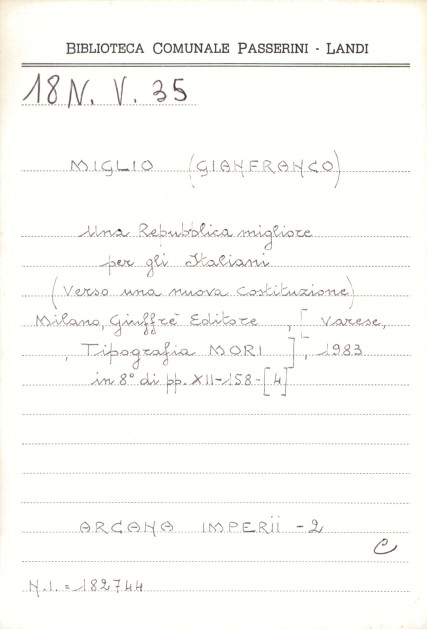 BIBLIOTECA COMUNALE PASSERINI - LANDI
18 N. V. 35
MIGLIO (GIANFRANCO)
Una Repubblica migliore
per gli Italiani
(Verso una nuova costituzione)
Milano, Giuffrè Editore , [ Varese,
, Tipografia MORI ], 1983
in 8° di pp. XII-158-[4]
ARCANA IMPERII - 2
C
N.I. = 182744